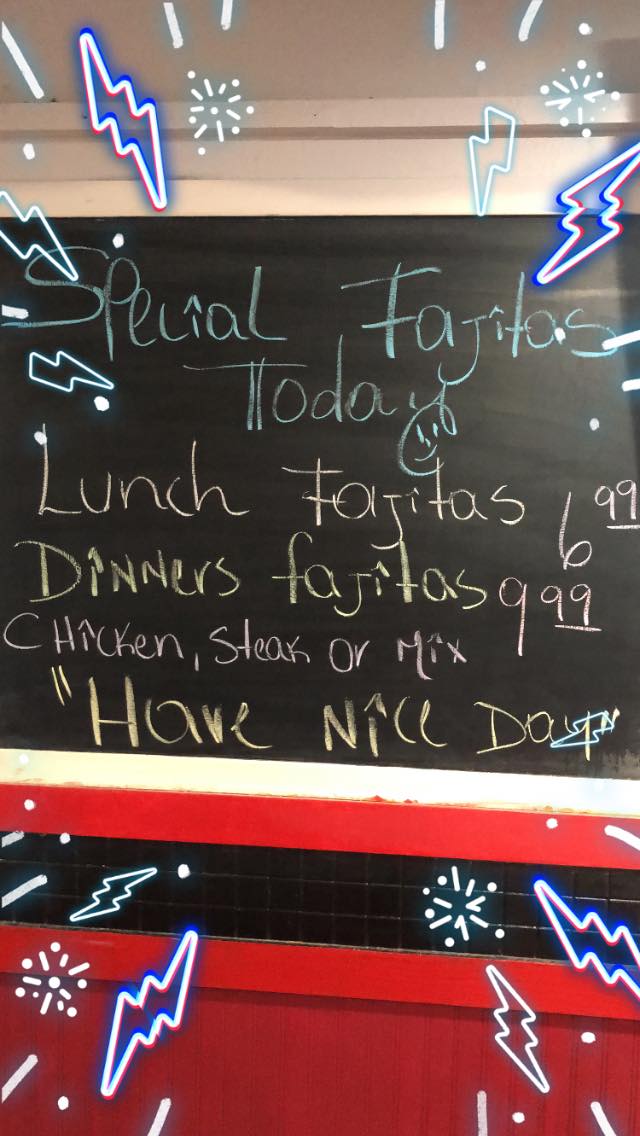 Special Fajitas
Today
Lunch Fajitas 6 99
Dinners fajitas 9 99
Chicken, Steak or Mix
"Have Nice Day"